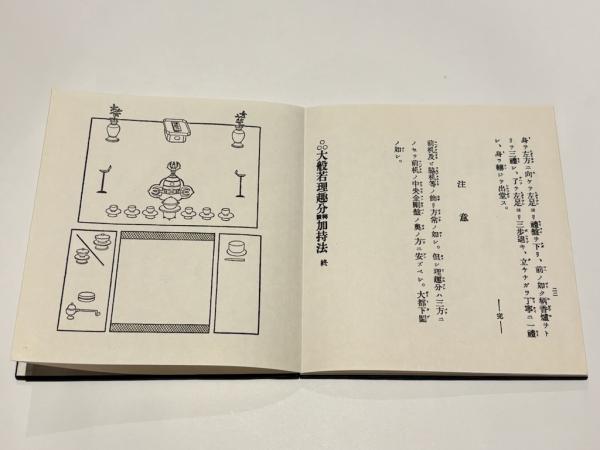 身ヲ左方ニ向ケテ左足ヨリ禮盤ヲ下リ、前ノ如ク柄香爐ヲト
リテ三禮シ、了テ左足ヨリ三歩退キ、立ケナガラ丁寧ニ一禮
シ、身ヲ轉ジテ出堂ス。
―完―
注意
前机及ビ脇机等ノ飾リ方常ノ如シ。但シ理趣分ハ三方ニ
ノセテ前机ノ中央金剛盤ノ奧ノ方ニ安ズベシ。大都下圖
ノ如シ。
大般若理趣分加持法 終